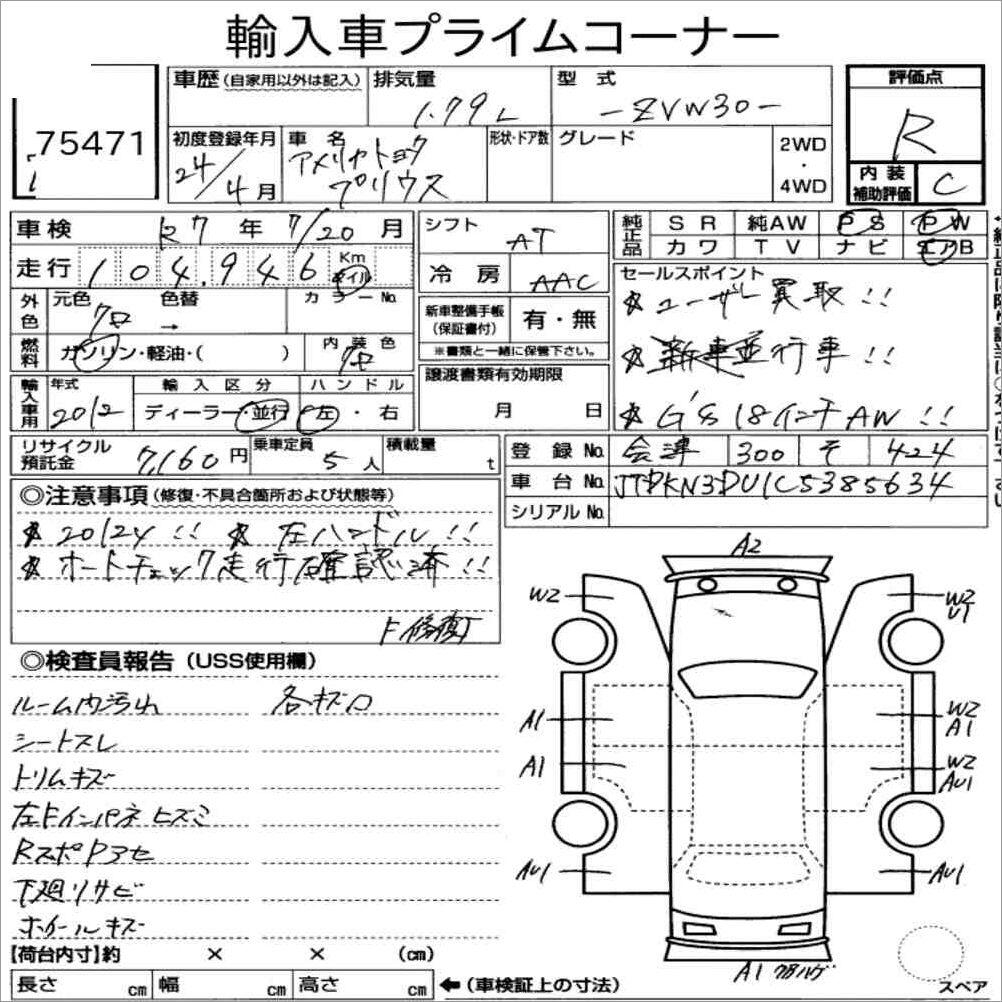 輸入車プライムコーナー
75471
車歴(自家用以外は記入) 排気量 1.79L 型式 -ZVW30- 評価点 R
初度登録年月 24/4月 車名 アメリカトヨタ プリウス 形状・ドア数 グレード 2WD・4WD 内装補助評価 C
車検 27年 7/20月 シフト AT 純正品 SR 純AW PS PW
カワ TV ナビ エアB
走行 104,946 Km マイル 冷房 AAC セールスポイント
外色 元色 クロ 色替 → カラーNo. 新車整備手帳(保証書付) 有・無 ☆ユーザー買取!!
※書類と一緒に保管下さい。
燃料 ガソリン・軽油・( ) 内装色 クロ ☆新車並行車!!
輸入車用 年式 2012 輸入区分 ディーラー・並行 ハンドル 左・右 譲渡書類有効期限 月 日 ☆G's 18インチAW!!
リサイクル預託金 7,160円 乗車定員 5人 積載量 t 登録No. 会津 300 そ 424
車台No. JTDKN3DU1C5385634
シリアルNo.
◎注意事項(修復・不具合箇所および状態等)
☆2012y!! ☆左ハンドル!!
☆オートチェック走行確認済!!
F修復
◎検査員報告(USS使用欄)
ルーム内汚れ 各キズ凹
シートスレ
トリムキズ
左Fインパネヒズミ
RスポPアセ
下廻りサビ
ホイールキズ
A2
W2
W2
U1
A1
W2
A1
A1
W2
AU1
AU1
AU1
A1
【荷台内寸】約 × × (cm)
長さ cm 幅 cm 高さ cm ←(車検証上の寸法)
スペア